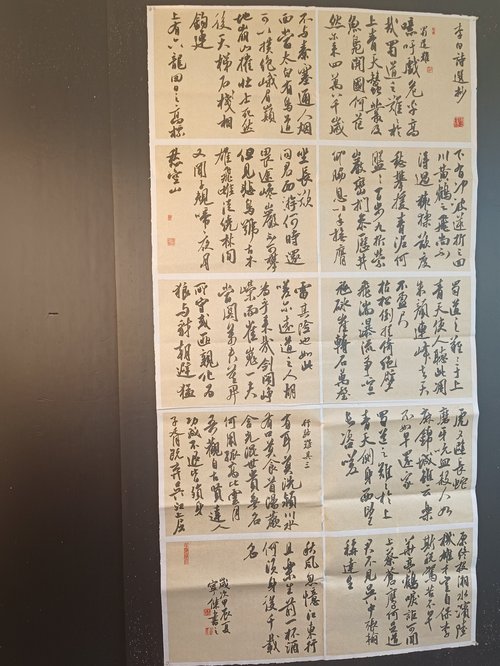 李白詩選抄
蜀道難
噫吁戲危乎高
哉蜀道之難難於
上青天蠶叢及
魚鳧開國何茫
然尔来四萬八千歲
不与秦塞通人烟
西當太白有鳥道
可以横絶峨眉巔
地崩山摧壯士死然
後天梯石棧相
鉤連
上有六龍回日之高標
下有冲波逆折之回
川黄鶴之飛尚不
得過猿猱欲度
愁攀援青泥何
盤盤百步九折縈
巖巒捫參歷井
仰脅息以手撫膺
坐長歎
问君西游何時還
畏途巉巖不可攀
但見悲鳥號古木
雄飛雌從繞林间
又聞子規啼夜月
愁空山
蜀道之難難於上
青天使人聽此凋
朱顏連峰去天
不盈尺
枯松倒掛倚絶壁
飛湍瀑流爭喧
豗砯崖轉石萬壑
雷其險也如此
嗟尔遠道之人胡
為乎来哉劍閣崢
嶸而崔嵬一夫
當關萬夫莫開
所守或匪親化為
狼与豺朝避猛
虎夕避長蛇
磨牙吮血殺人如
麻錦城雖云樂
不如早還家
蜀道之難難於上
青天側身西望
長咨嗟
行路難其三
有耳莫洗潁川水
有口莫食首陽蕨
含光混世貴無名
何用孤高比雲月
吾觀自古賢達人
功成不退皆殞身
子胥既棄吳江上屈
原終投湘水濱陸
機雄才豈自保李
斯税駕苦不早
華亭鶴唳詎可聞
上蔡蒼鷹何足道
君不見吳中張翰
稱達生
秋風忽憶江東行
且樂生前一杯酒
何須身後千載
名
歲次甲辰夏
書之